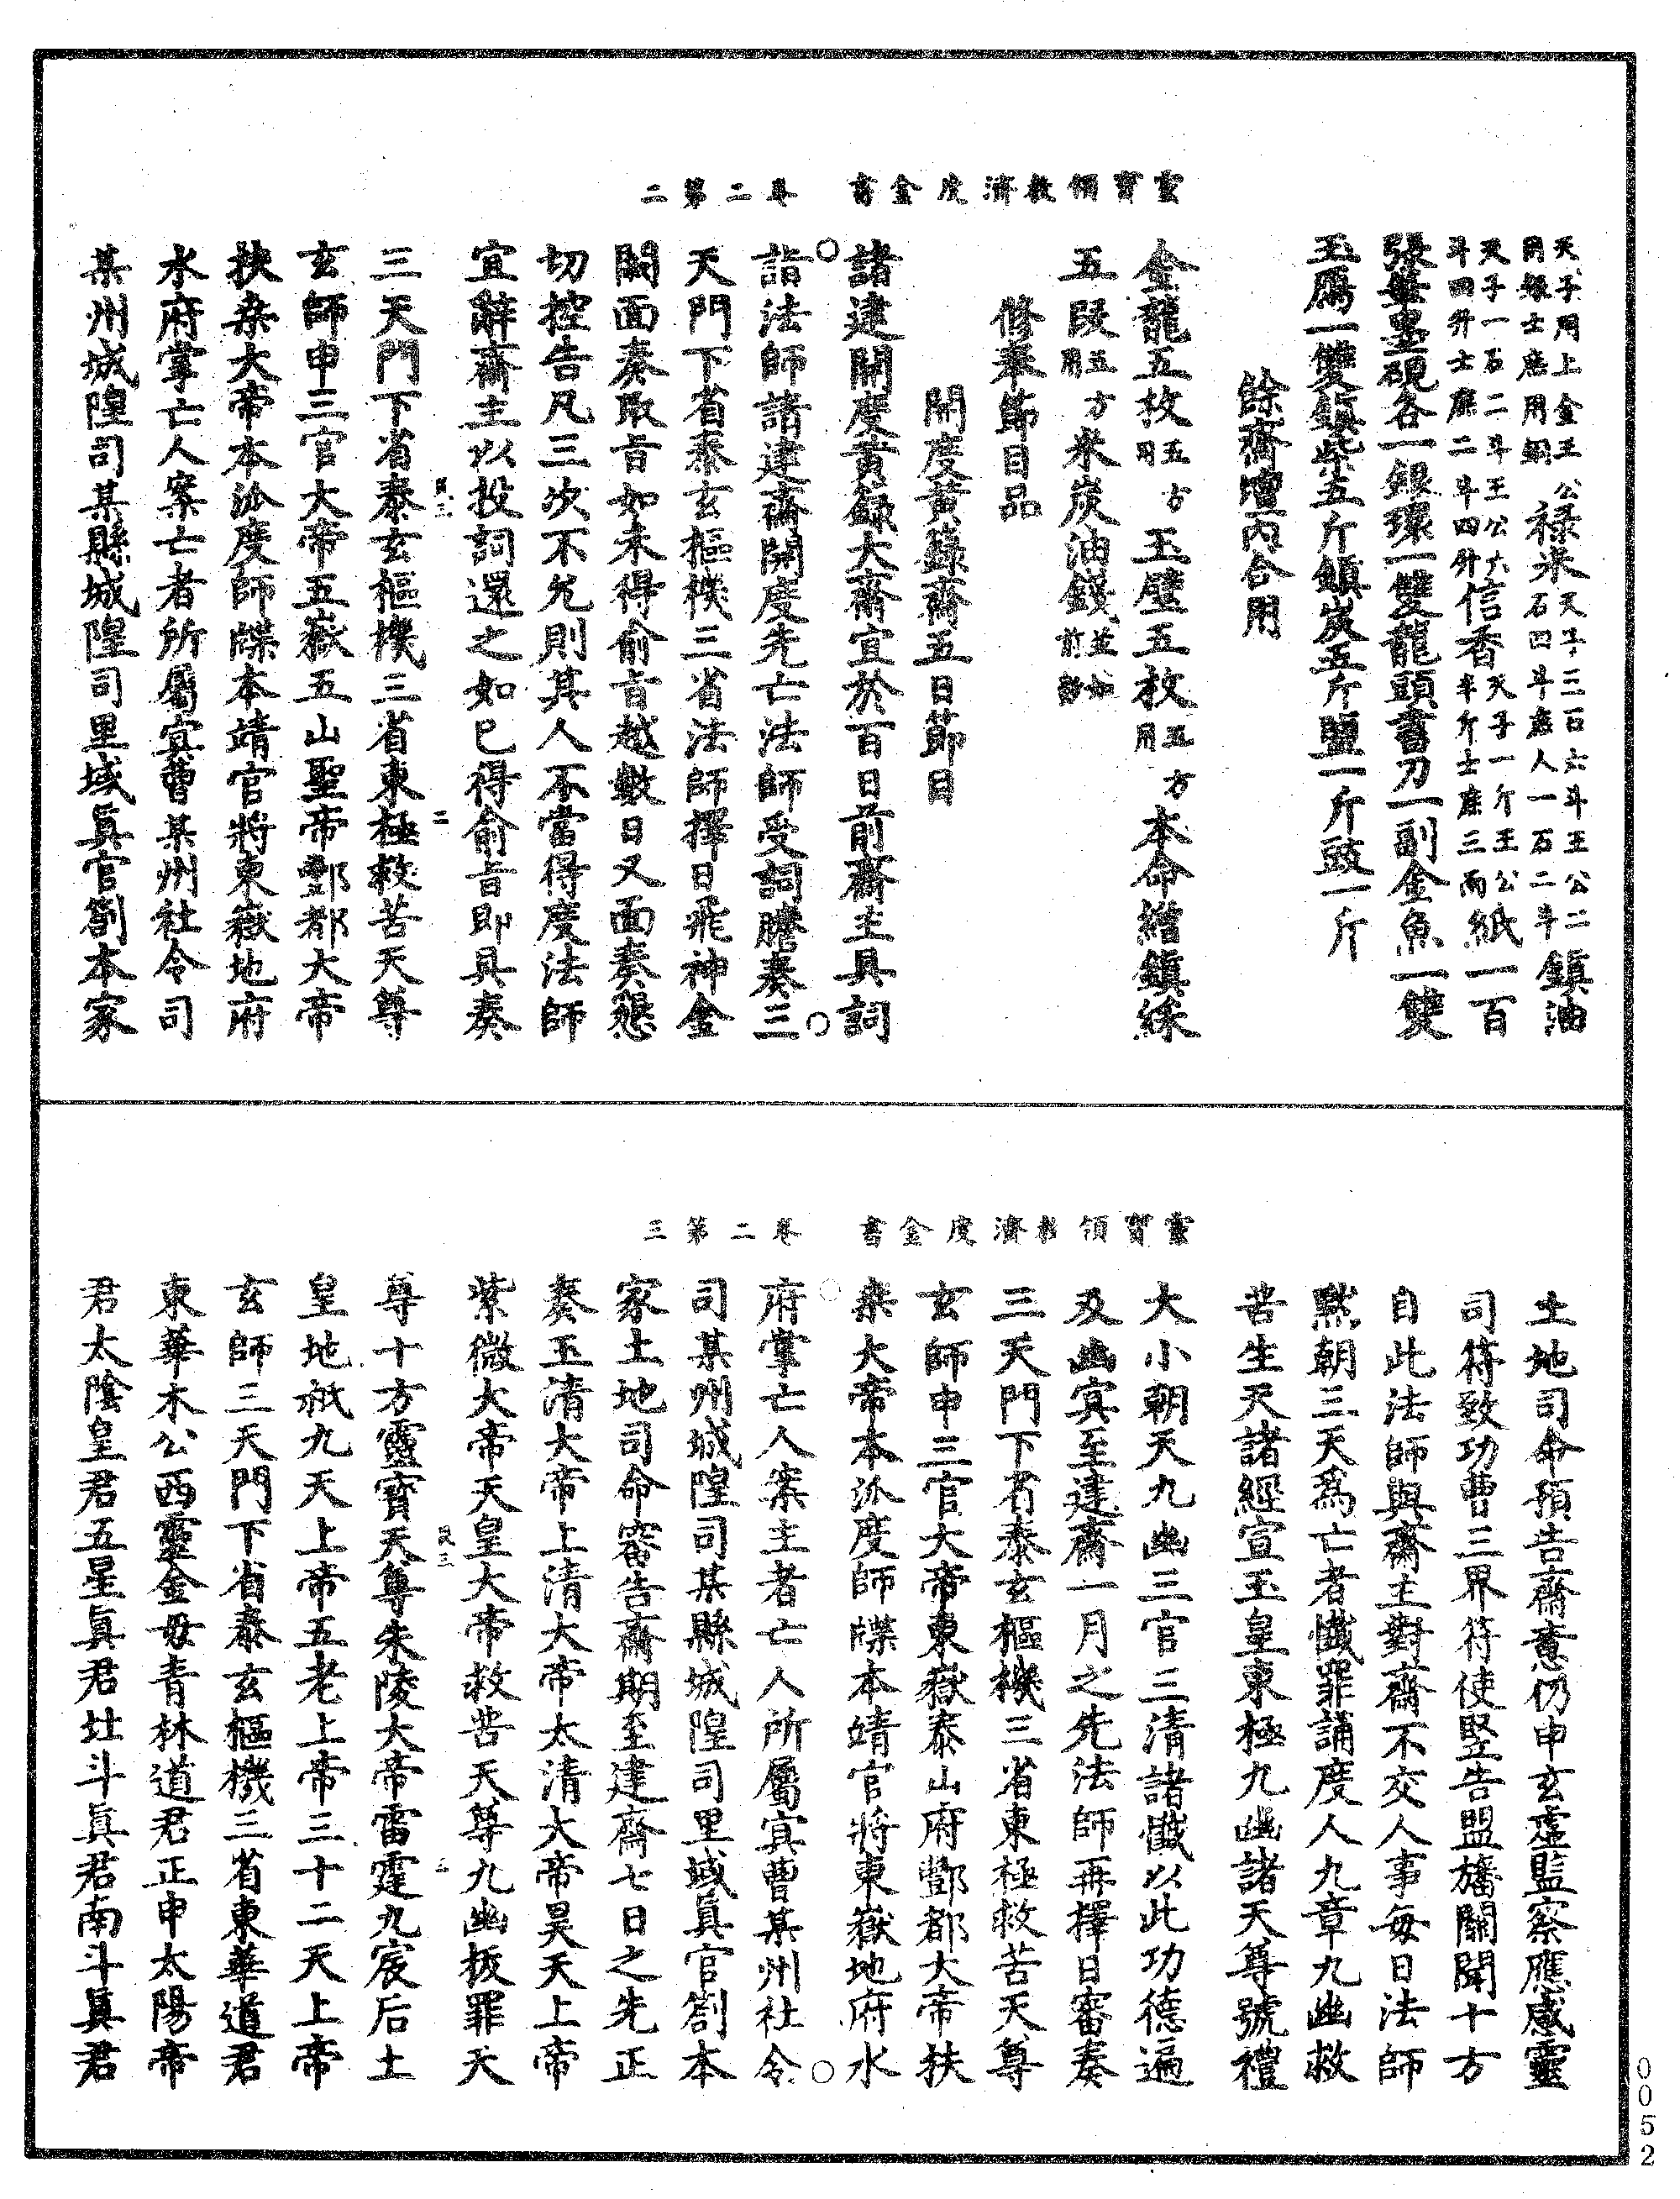 靈寶領教濟度金書　卷二第二
天子用上金王公
用銀士庶用銅祿米天子三石六斗王公二
石四斗庶人一石二斗鎮油
天子一石二斗王公六
斗四升士庶二斗四升信香天子一斤王公
半斤士庶三兩紙一百
張筆墨硯各一銀環一雙龍頭書刀一副金魚一雙
玉鴈一雙鎮柴五斤鎮炭五斤鹽一斤豉一斤
餘齋壇內合用
金龍五枚五方
用玉璧五枚五方
用本命繒鎮綵
五段五方
用米炭油錢並如
前
修奉節目品
開度黃籙齋五日節目
諸建開度黃籙大齋宜於百日前齋主具詞
詣法師諸建齋開度先亡法師受詞謄奏三
天門下省泰玄樞機三省法師擇日飛神金
闕面奏取旨如未得俞旨越數日又面奏懇
切控告凡三次不允則其人不當得度法師
宜辭齋主以投詞還之如已得俞旨即具奏
三天門下省泰玄樞機三省東極救苦天尊
玄師申三官大帝五嶽五山聖帝酆都大帝
扶桑大帝本派度師牒本靖官將東嶽地府
水府掌亡人案亡者所屬冥曹某州社令司
某州城隍司某縣城隍司里域眞官劄本家
靈寶領教濟度金書　卷二第三
土地司命預告齋意仍申玄虛監察應感靈
司符致功曹三界符使豎告盟旛關聞十方
自此法師與齋主對齋不交人事每日法師
默朝三天爲亡者懺罪誦度人九章九幽救
苦生天諸經宣玉皇東極九幽諸天尊號禮
大小朝天九幽三官三清諸懺以此功德遍
及幽冥至建齋一月之先法師再擇日審奏
三天門下省泰玄樞機三省東極救苦天尊
玄師申三官大帝東嶽泰山府酆都大帝扶
桑大帝本派度師牒本靖官將東嶽地府水
府掌亡人案主者亡人所屬冥曹某州社令
司某州城隍司某縣城隍司里域眞官劄本
家土地司命審告齋期至建齋七日之先正
奏玉清大帝上清大帝太清大帝昊天上帝
紫微大帝天皇大帝救苦天尊九幽拔罪天
尊十方靈寶天尊朱陵大帝雷霆九宸后土
皇地祇九天上帝五老上帝三十二天上帝
玄師三天門下省泰玄樞機三省東華道君
東華木公西靈金母青林道君正申太陽帝
君太陰皇君五星眞君北斗眞君南斗眞君
0052